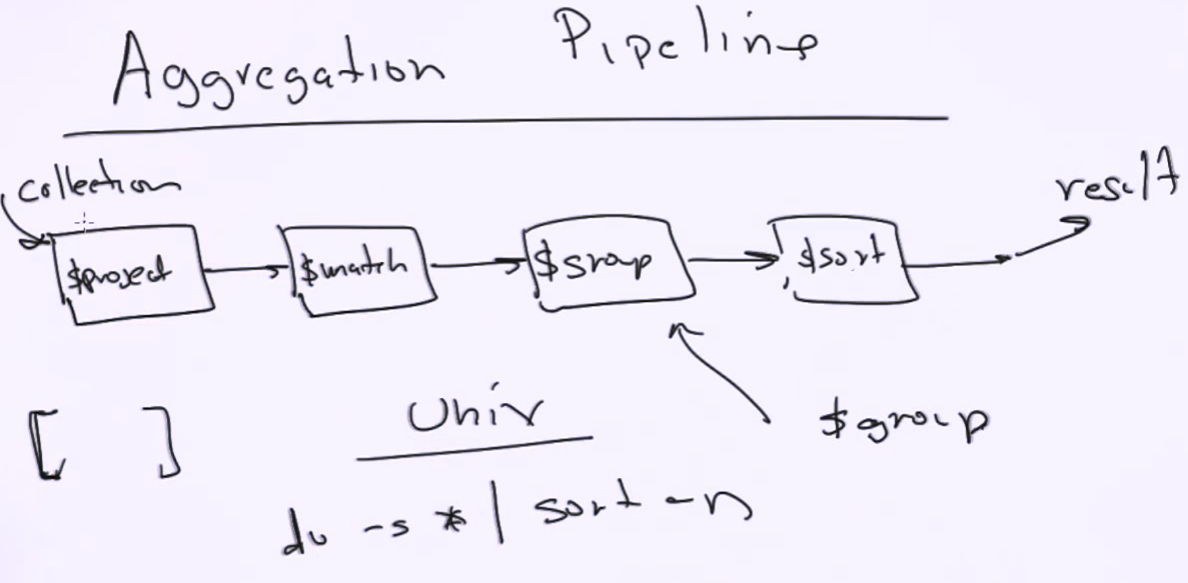 Aggregation Pipeline
collection
result
$project $match $group $sort
$group
[ ]
Unix
du -s * | sort -n